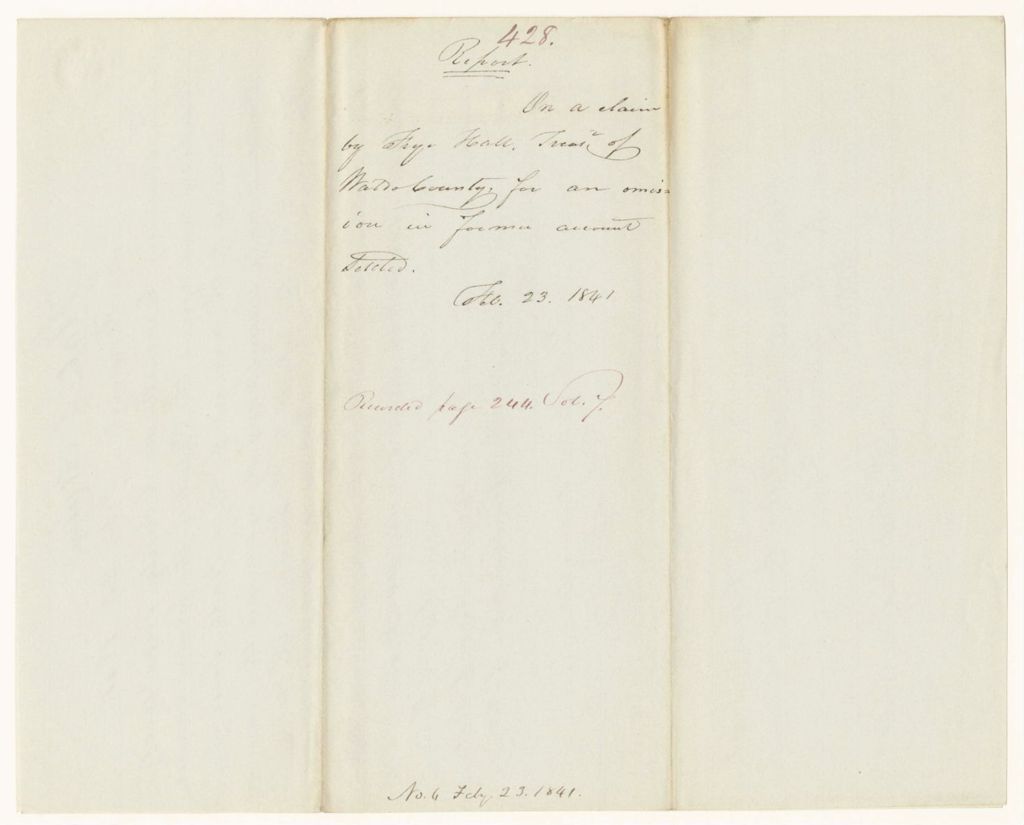 428.
Report.
On a claim
by Frye Hall, Treasr of
Waldo County, for an omiss
ion in former account
settled.
Feb. 23. 1841
Recorded page 244. Vol. 7.
No. 6 Feby. 23. 1841.